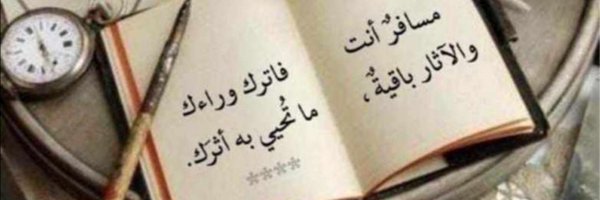 مسافرٌ أنت
والآثار باقيةٌ،
فاترك وراءك
ما تُحيي به أثرَك.
****